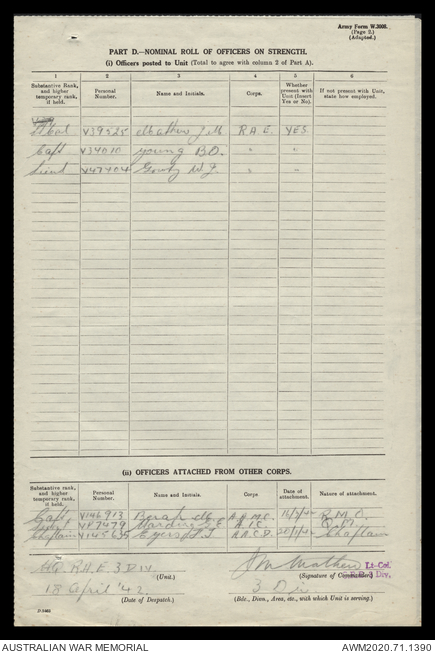 Army Form W.3008.
(Page 2.)
(Adapted.)
PART D.—NOMINAL ROLL OF OFFICERS ON STRENGTH.
(i) Officers posted to Unit (Total to agree with column 2 of Part A).
1 2 3 4 5 6
Substantive Rank, and higher temporary rank, if held. Personal Number. Name and Initials. Corps. Whether present with Unit (Insert Yes or No). If not present with Unit, state how employed.
V39525 Mather J M R A E. YES
Capt V34010 Young B.O. " "
Lieut V47404 W.J. " "
(ii) OFFICERS ATTACHED FROM OTHER CORPS.
Substantive rank, and higher temporary rank, if held. Personal Number. Name and Initials. Corps. Date of attachment. Nature of attachment.
Capt V146913 A.A.M.C. R.M.O.
VP7479 Q.M.
Chaplain Eyers Chaplain
HQ R.A.E. 3 DIV. J M Mather Lt-Col.
(Unit.) (Signature of Commander) 3 Div.
18 April '42. 3 Div
(Date of Despatch.) (Bde., Divn., Area, etc., with which Unit is serving.)
AUSTRALIAN WAR MEMORIAL AWM2020.71.1390